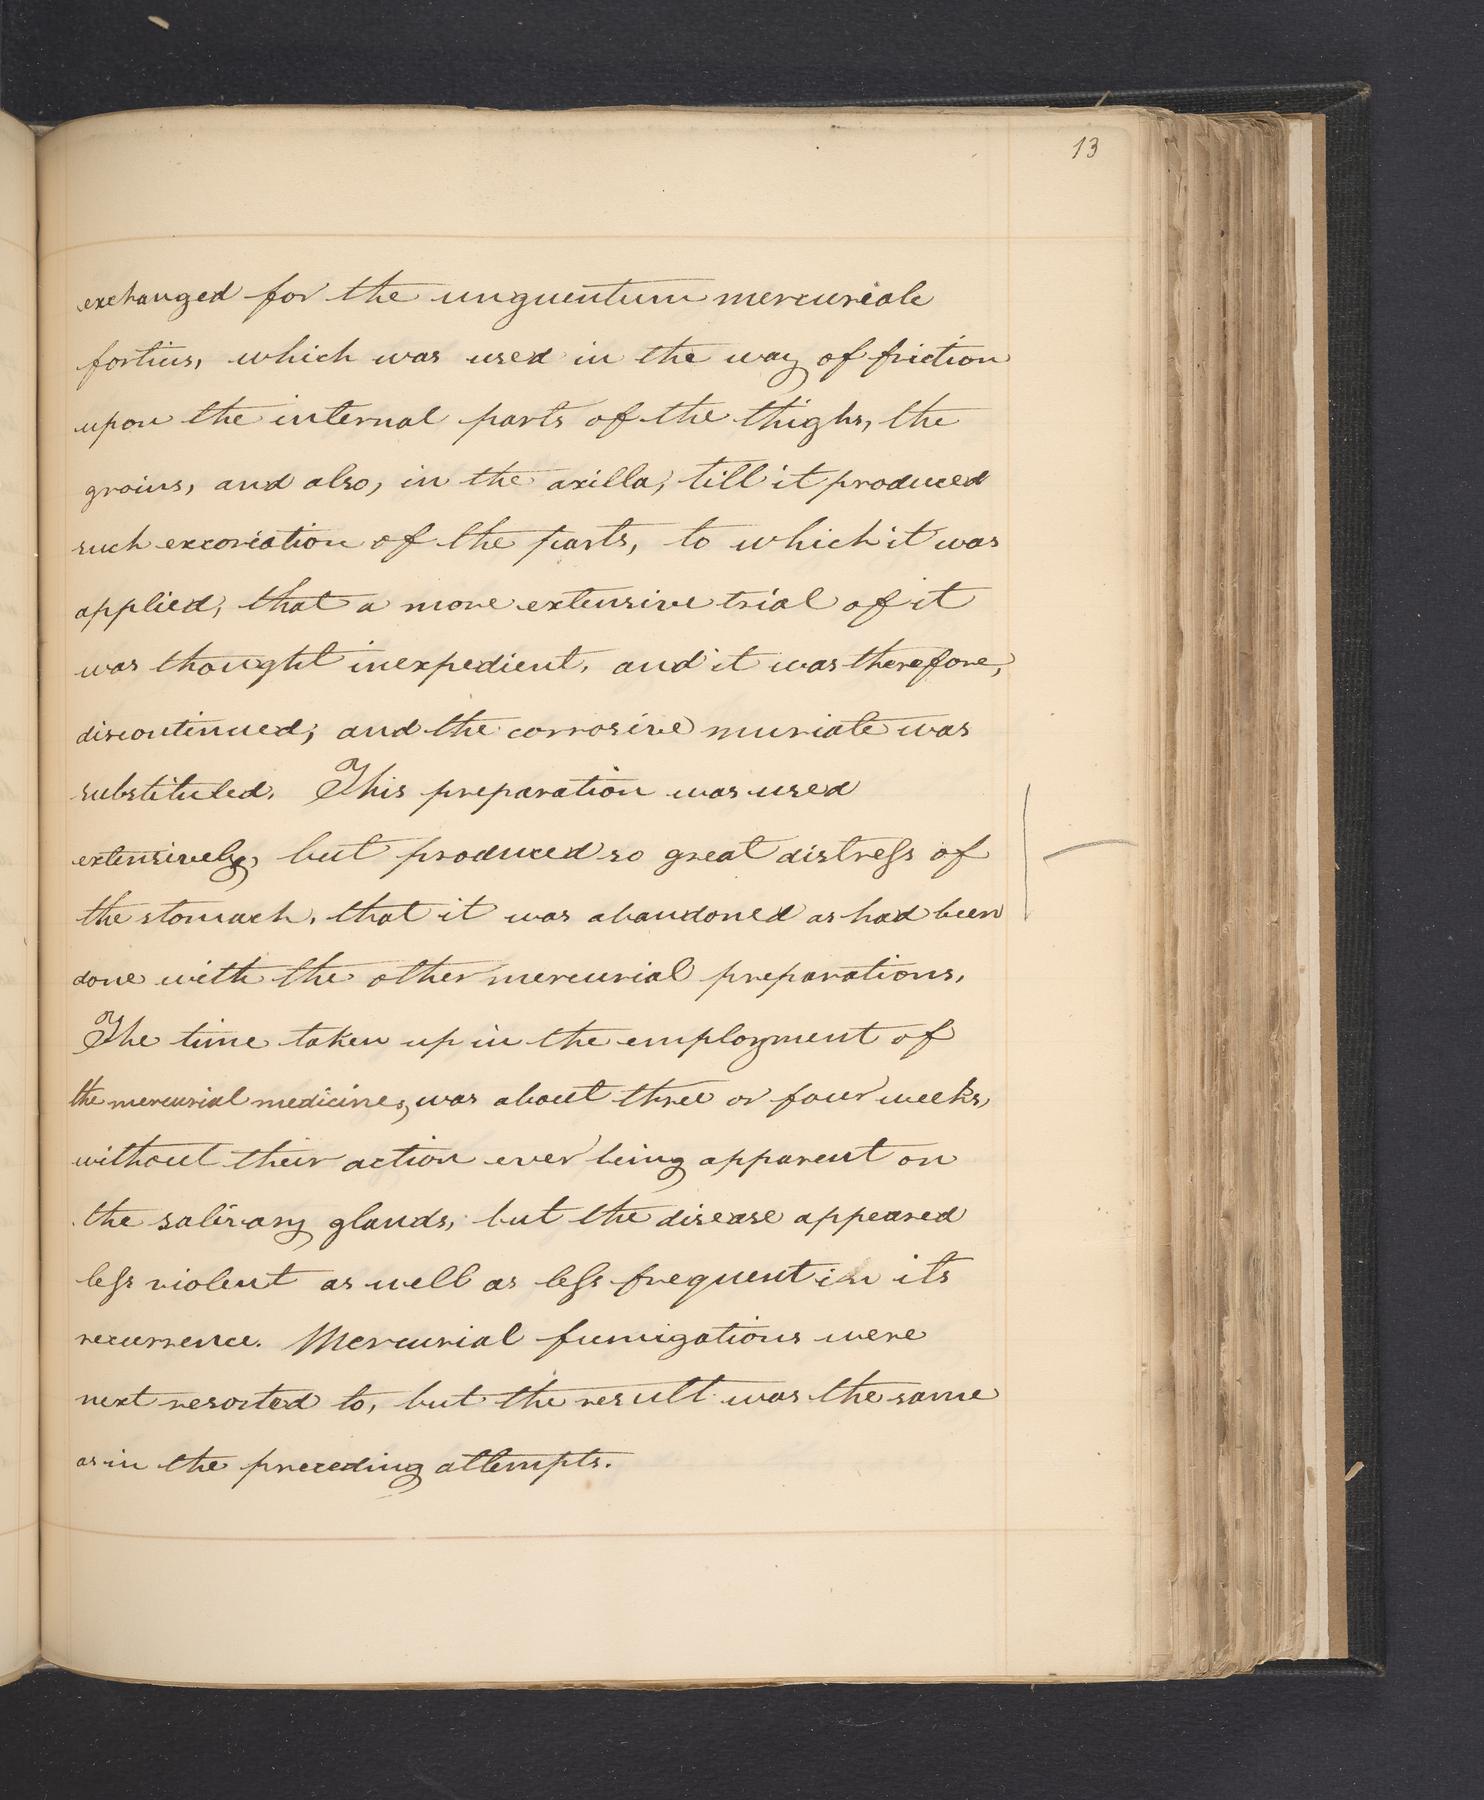 13
exchanged for the unguentum mercuriale
fortius, which was used in the way of friction
upon the internal parts of the thighs, the
groins, and also, in the axilla, till it produced
such excoriation of the parts, to which it was
applied, that a more extensive trial of it
was thought inexpedient, and it was therefore,
discontinued; and the corrosive muriate was
substituted. This preparation was used
extensively, but produced so great distress of
the stomach, that it was abandoned as had been
done with the other mercurial preparations.
The time taken up in the employment of
the mercurial medicines, was about three or four weeks,
without their action ever being apparent on
the salivary glands, but the disease appeared
less violent as well as less frequent in its
recurrence. Mercurial fumigations were
next resorted to, but the result was the same
as in the preceding attempts.